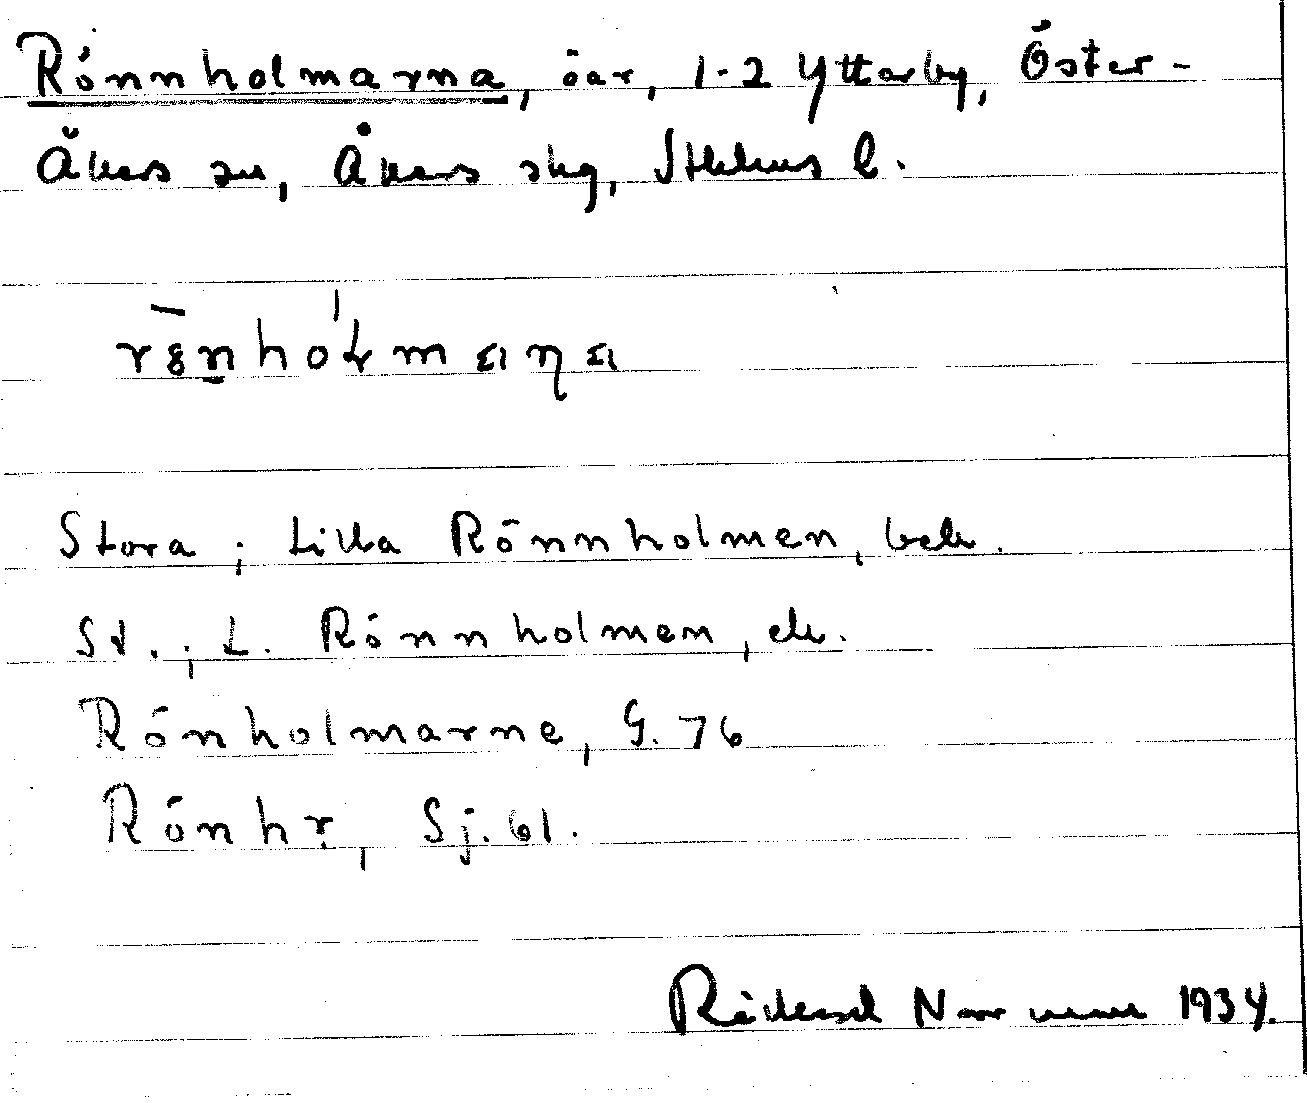 Rönnholmarna, öar, 1-2 Ytterby, Öster-
Åkers sn, Åkers skg, Sthlms l.
Stora ; Lilla Rönnholmen, bek.
St. ; L. Rönnholmen, ek.
Rönholmarne, G. 76
Rönhr, Sj. 61.
1934.